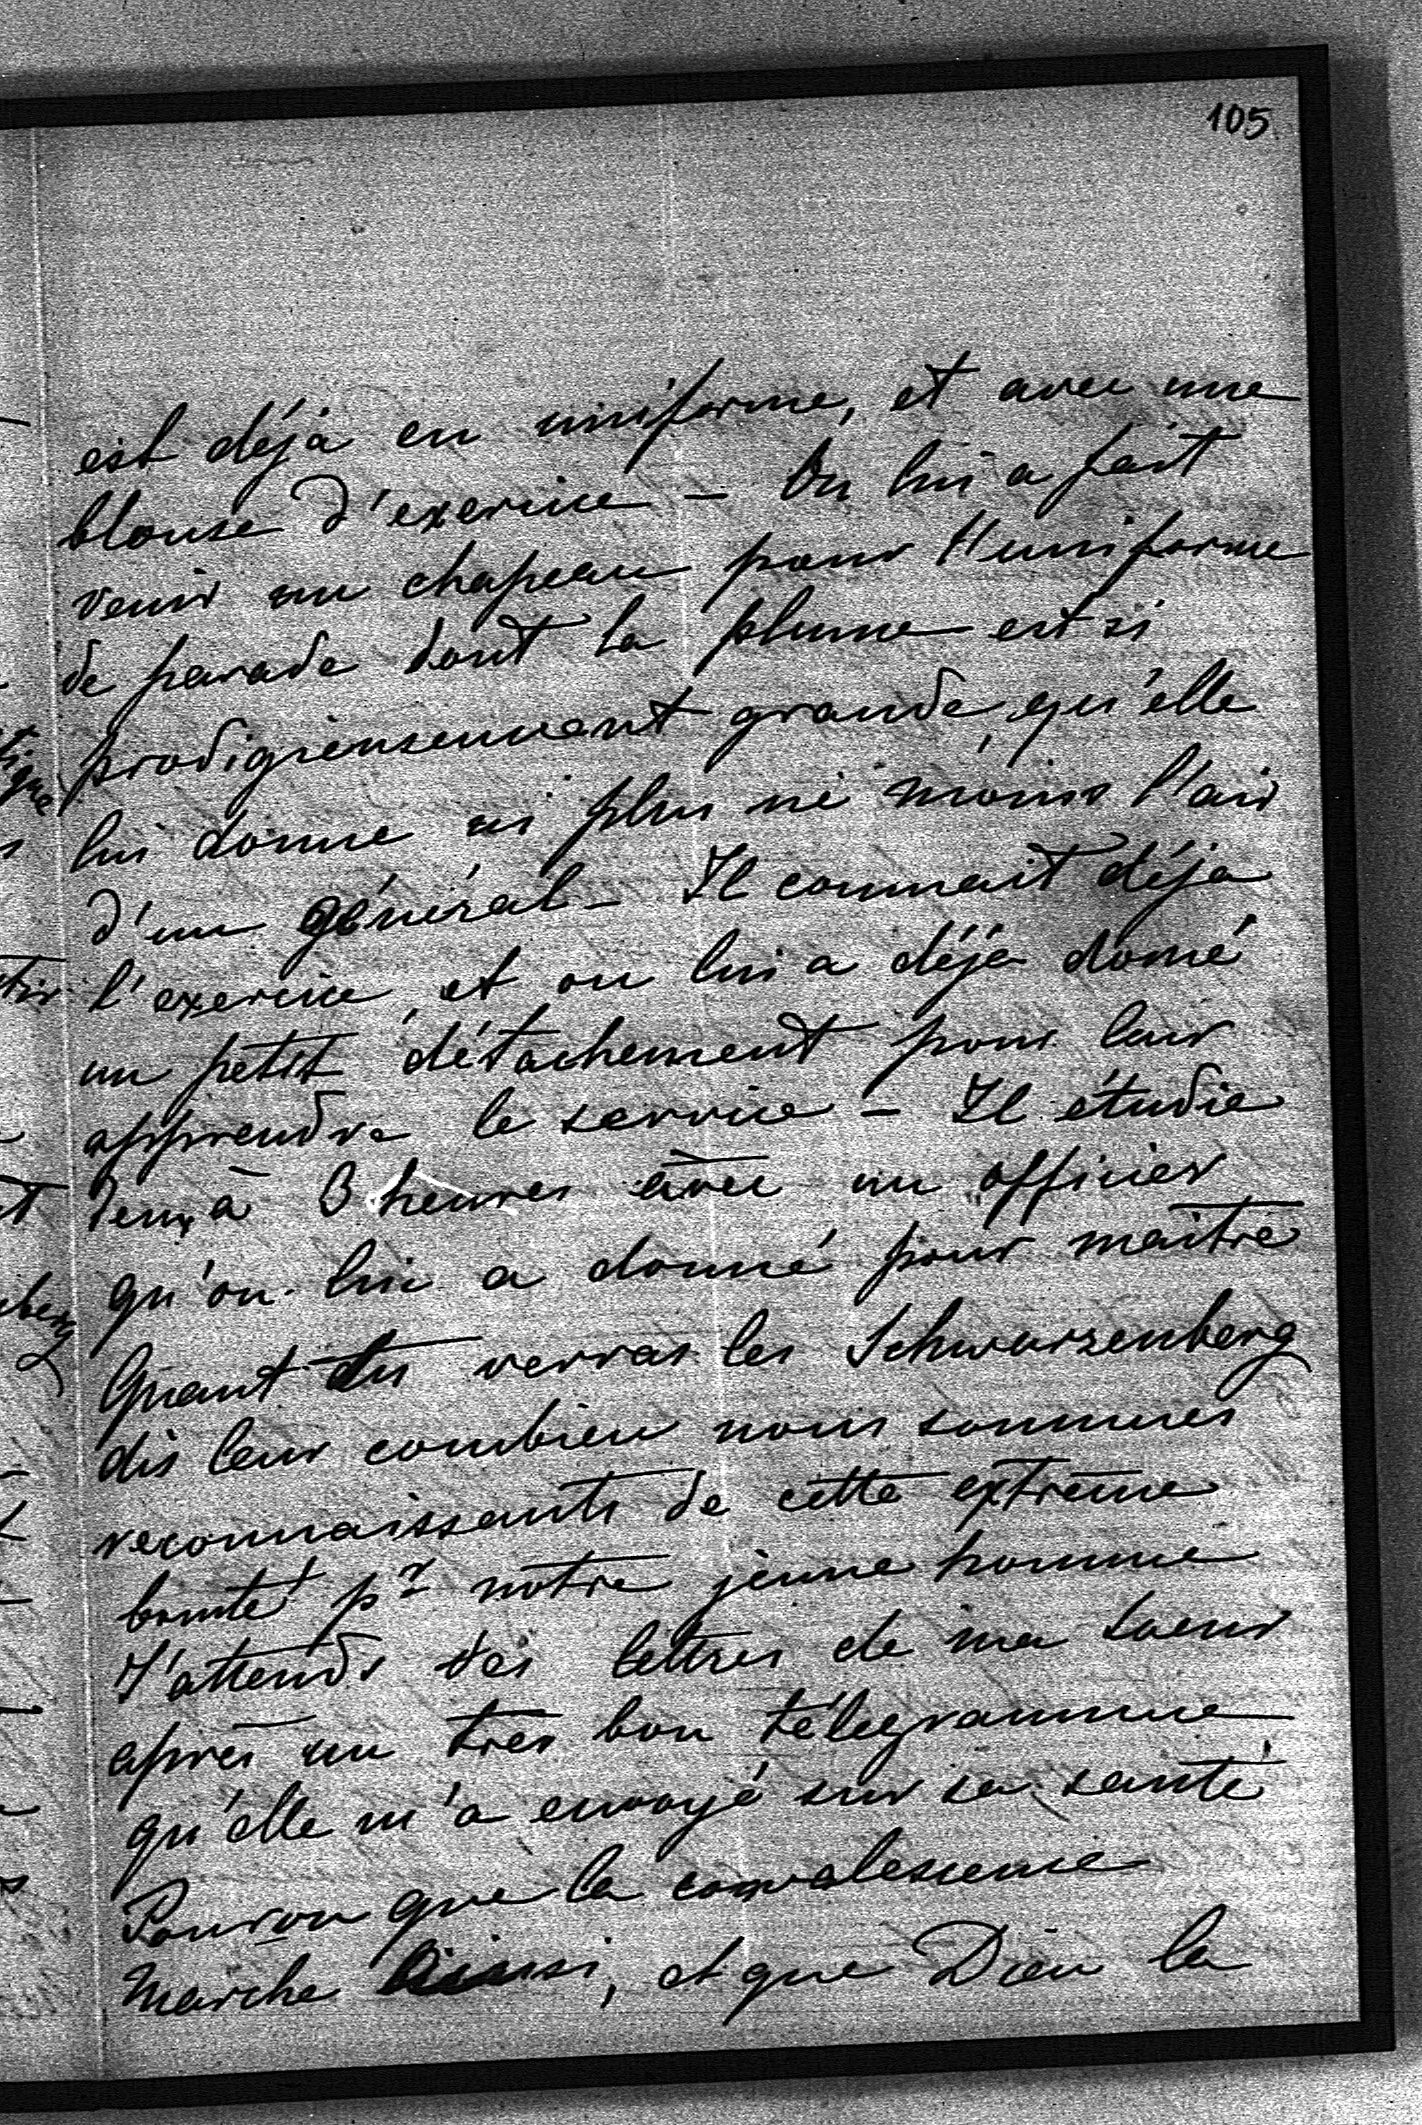 105
est déjà en uniforme, et avec une
blouse d'exercice – On lui a fait
venir un chapeau pour l'uniforme
de parade dont la plume est si
prodigieusement grande, qu'elle
lui donne ni plus ni moins l'air
d'un général – Il connait déja
l'exercice, et on lui a déjà donné
un petit détachement pour leur
apprendre le service – Il étudie
deux à 3 heures avec un officier
qu'on lui a donné pour maître
Quant tu verras les Schwarzenberg
dis leur combien nous sommes
reconnaissants de cette extrême
bonté pr notre jeune homme
J'attends des lettres de ma soeur
après un très bon télegramme
qu'elle m'a envoyé sur sa santé
Pourvu que la convalescence
marche ainsi, et que Dieu la